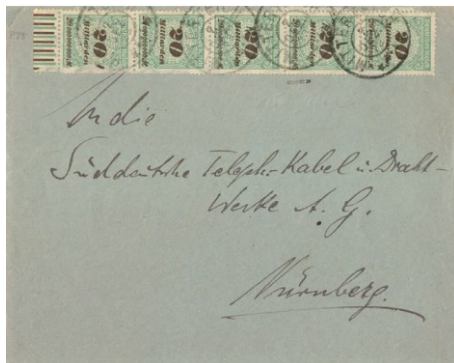 20 Milliarden 20 Milliarden 20 Milliarden 20 Milliarden 20 Milliarden
An die
Süddeutsche Telgph.-Kabel u. Draht-
Werke A. G.
Nürnberg.